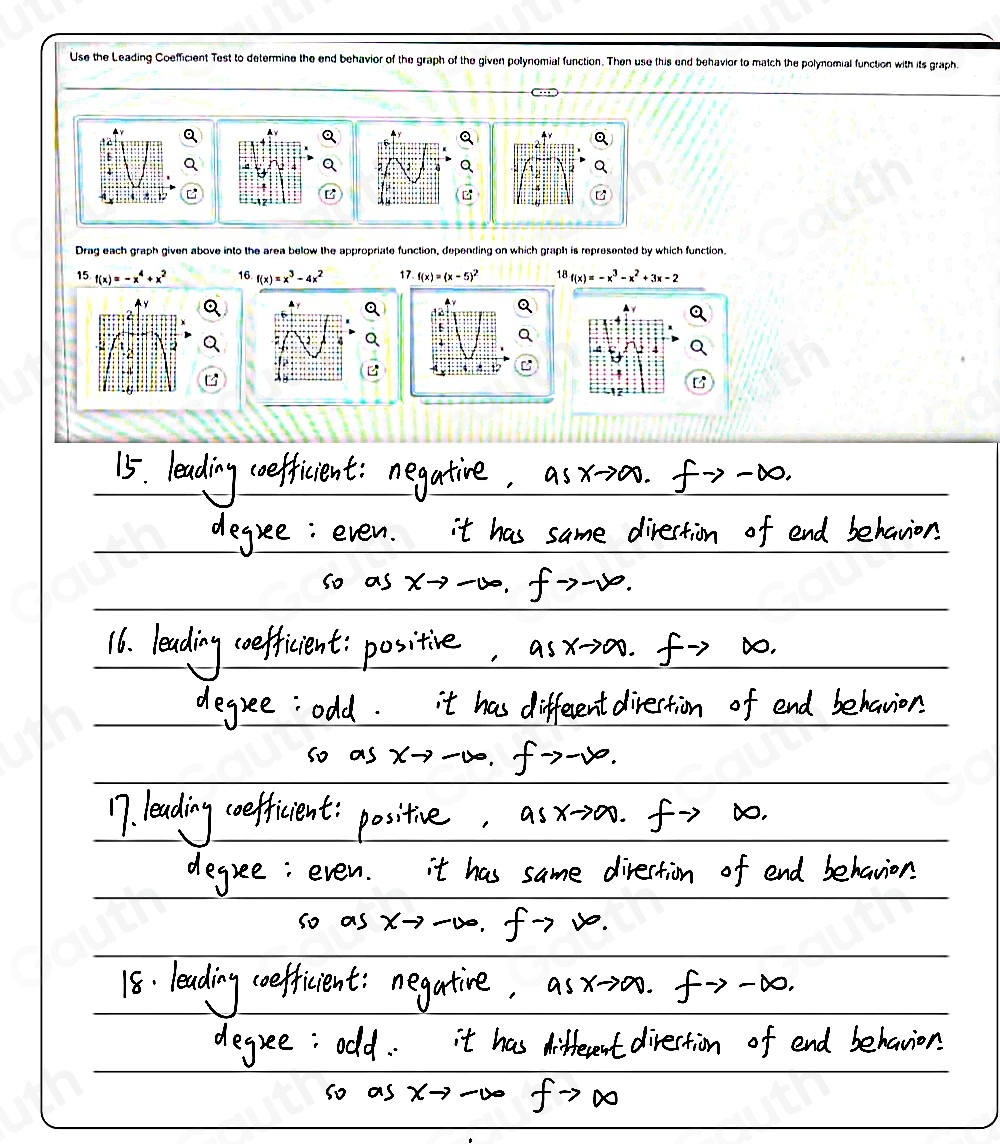 Use the Leading Coefficient Test to determine the end behavior of the graph of the given polynomial function. Then use this end behavior to match the polynomial function with its graph.
Drag each graph given above into the area below the appropriate function, depending on which graph is represented by which function.
15. f(x) = -x⁴ + x² 16. f(x) = x³ - 4x² 17. f(x) = (x - 5)² 18 f(x) = -x³ - x² + 3x - 2
15. leading coefficient: negative, as x→∞. f→ -∞.
degree : even. it has same direction of end behavior.
so as x→ -∞. f→-∞.
16. leading coefficient: positive, as x→∞. f→ ∞.
degree : odd. it has different direction of end behavior.
so as x→ -∞. f→-∞.
17. leading coefficient: positive, as x→∞. f→ ∞.
degree : even. it has same direction of end behavior.
so as x→ -∞. f→ ∞.
18. leading coefficient: negative, as x→∞. f→ -∞.
degree : odd.. it has different direction of end behavior.
so as x→ -∞ f→ ∞